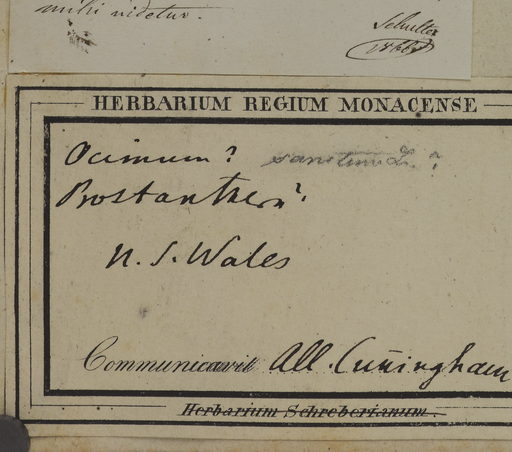 mihi videtur.
Schultes
HERBARIUM REGIUM MONACENSE
Ocimum? sanctum L. ?
Prostanthera?
N. S. Wales
Communicavit All. Cunningham
Herbarium Schreberianum.